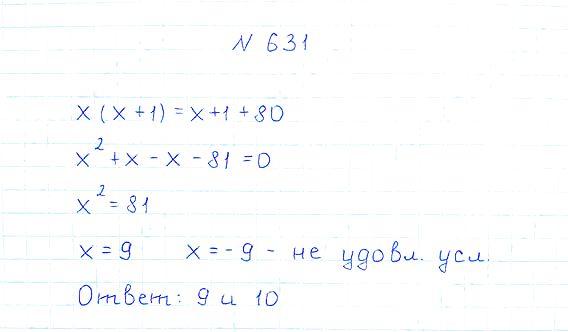 N 631
x(x+1)=x+1+80
x²+x-x-81=0
x²=81
x=9 x=-9 - не удовл. усл.
Ответ: 9 и 10